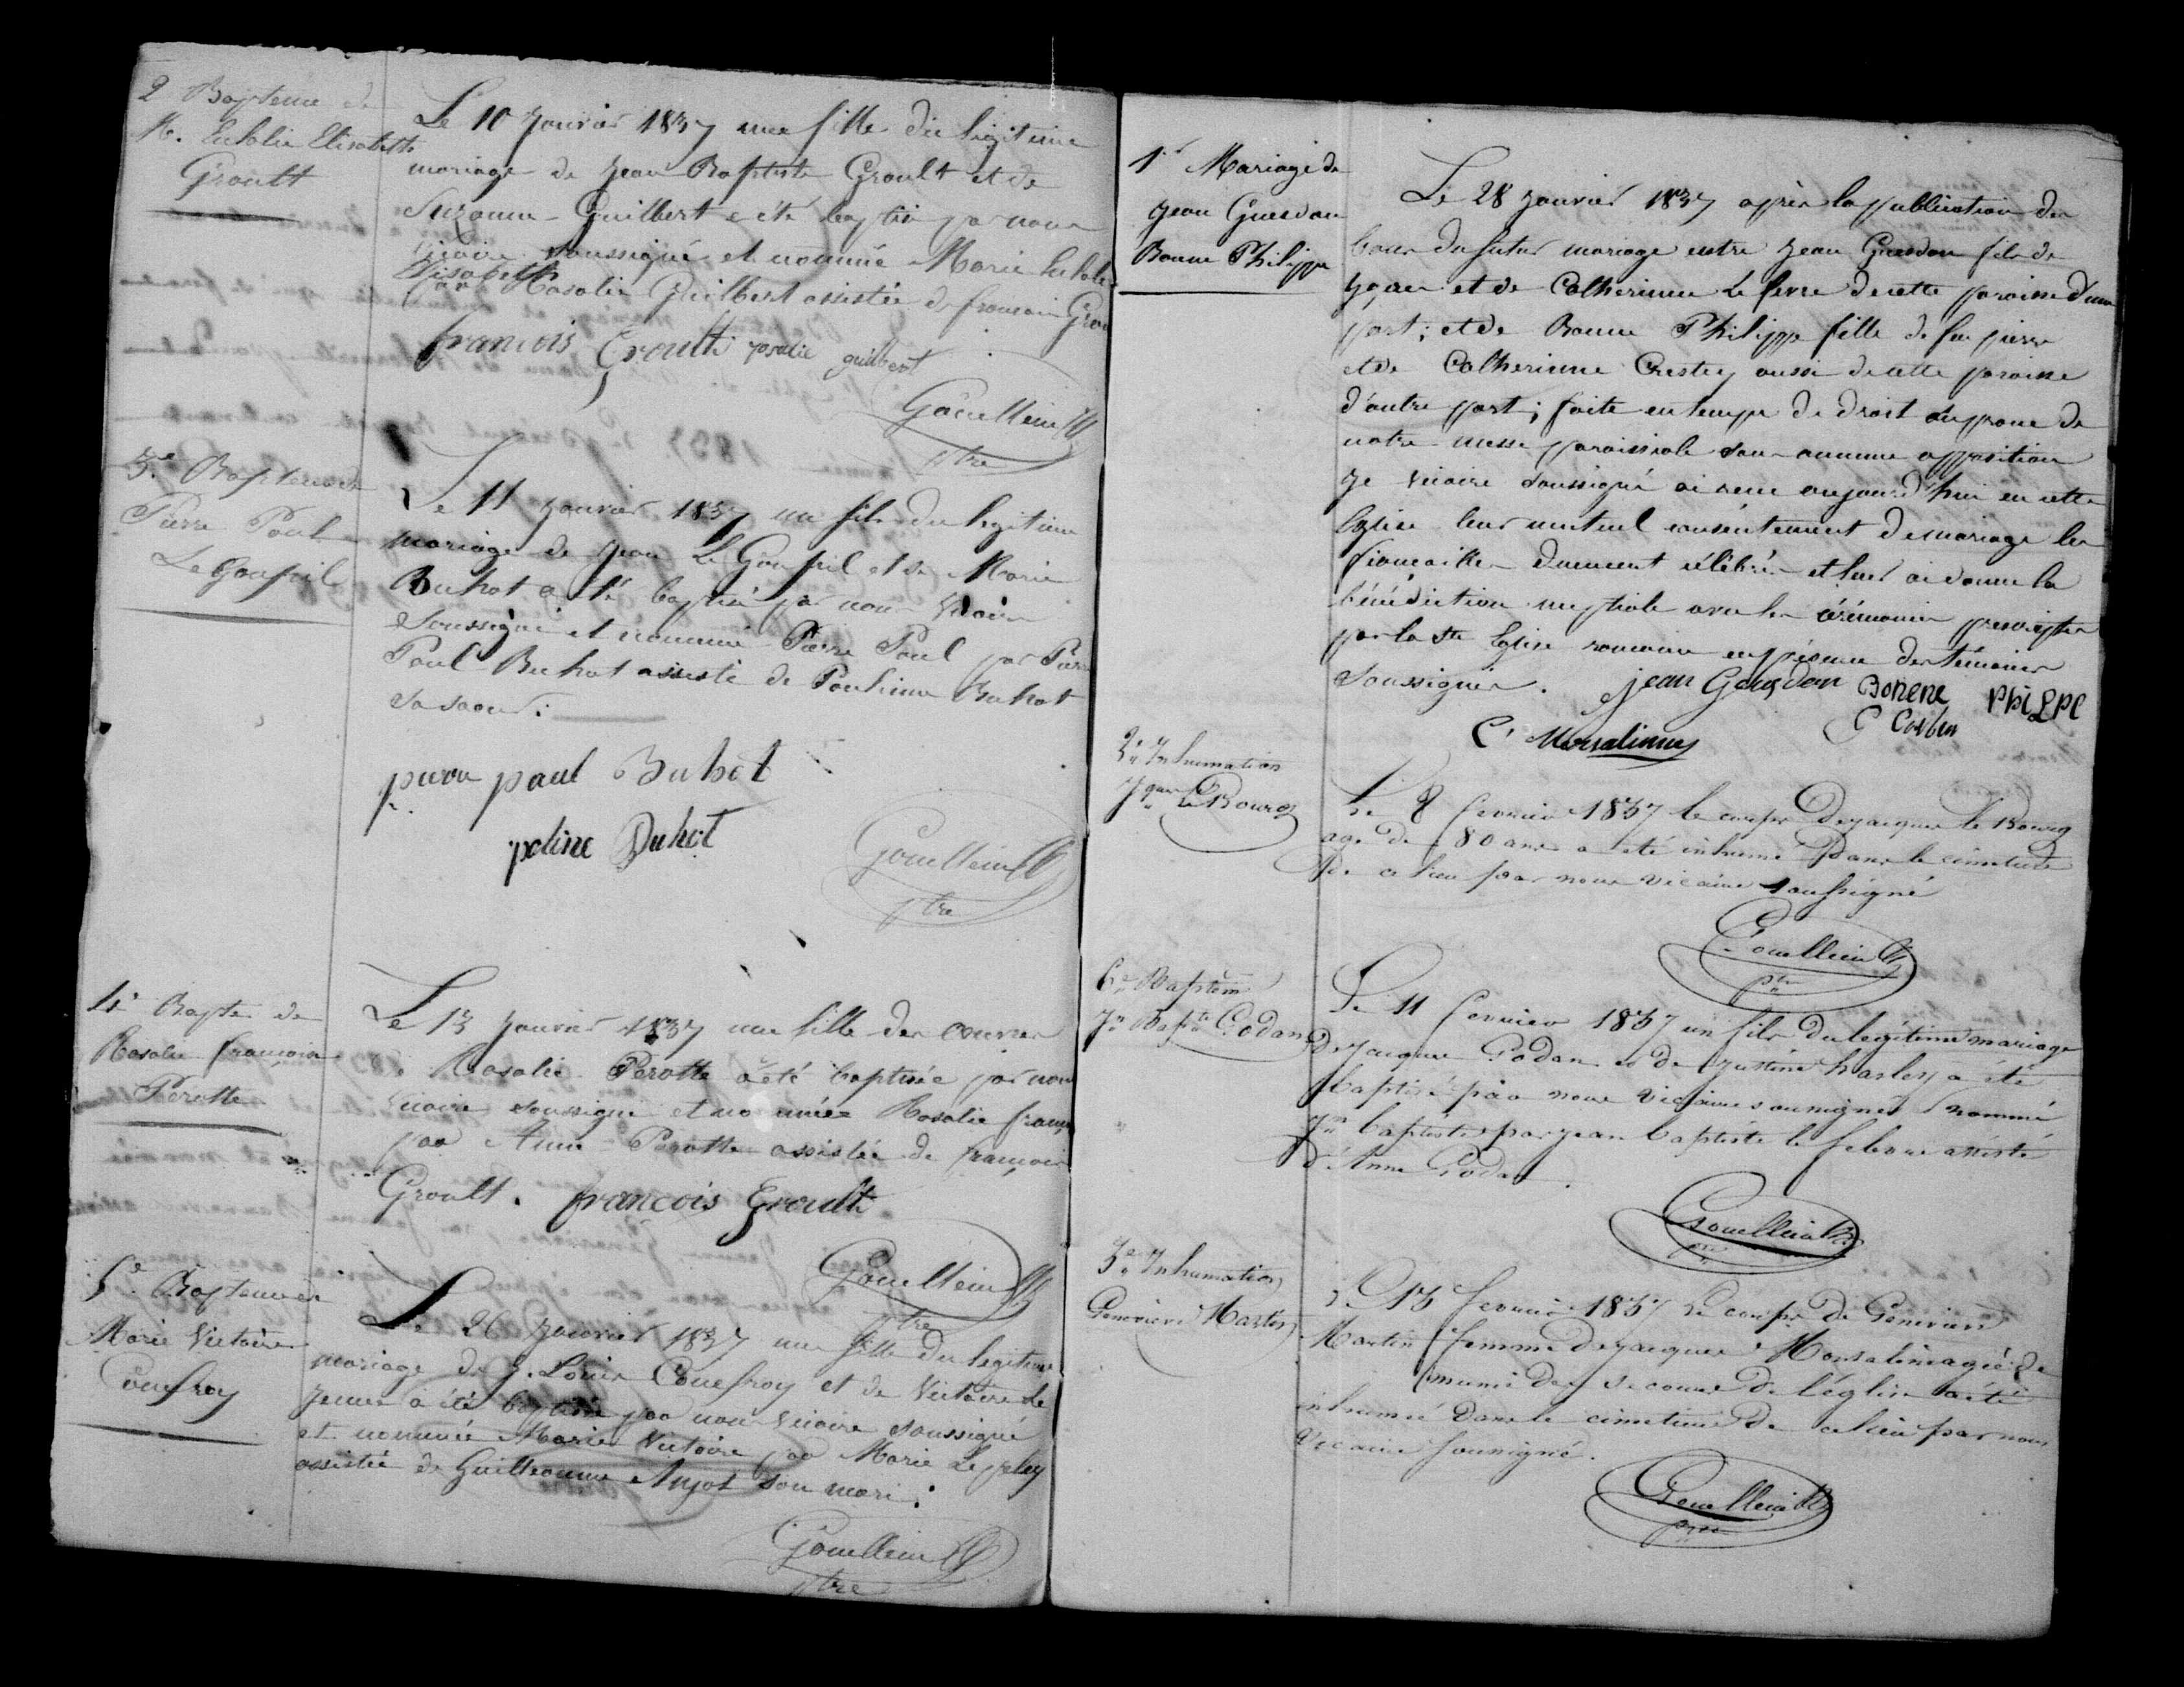 2 Bapteme de
M. Eulalie Elisabeth
Groult
Le 10 janvier 1837 une fille du légitime
mariage de jean Baptiste Groult et de
Suzanne Guilbert a été baptisé par nous
vicaire soussigné et nommée Marie Eulalie
Elisabeth
par Rosalie Guilbert assistée de françois Grou
francois Groult rosalie guilbert
ptre
3.e Bapteme de
Pierre Paul
Le Goupil
Le 11 janvier 1837 un fils du legitime
mariage de jean Le Goupil et de Marie
Buhot a été baptisé par nous vicaire
soussigné et nommé Pierre Paul par Pierre
Paul Buhot assisté de Pauline Buhot
sa soeur.
paul Buhot
poline Buhot
ptre
4e Bapte de
Rosalie françoise
Perotte
Le 13 janvier 1837 une fille des oeuvres
Rosalie Perotte a été baptisée par nous
vicaire soussigné et nommée Rosalie franç
par Anne Perotte assistée de françois
Groult. francois Groult
ptre
5e Bapteme de
Marie Victoire
Couefroy
Le 26 janvier 1837 une fille du legitime
mariage de J. Louis Couefroy et de Victoire Le
jeune a été baptisée par nous vicaire soussigné
et nommée Marie Victoire par Marie
assistée de Guilleaume Anjot son mari.
ptre
1er Mariage de
jean Guesdon
Bonne Philippe
Le 28 janvier 1837 après la publication des
bans du futur mariage entre jean Guesdon fils de
et de Catherinne Le fevre de cette paroisse d'une
part; et de Bonne Philippe fille de feu pierre
et de Catherinne Crestey aussi de cette paroisse
d'autre part; faite en temps de droit au prone de
notre messe paroissiale sans aucune opposition
je vicaire soussigné ai recu aujourd'hui en cette
Eglise leur mutuel consentement de mariage les
fiancailles duement célébrés et leur ai donné la
bénédiction nuptiale avec les cérémonies prescriptes
par la Ste Eglise romaine en présence des témoins
soussignés. jean Gousdon Bonene PhiLPe
2e Inhumation
Jques Le Bourg
Le 8 fevrier 1837 le corps de jacques le Bourg
agé de 80 ans a été inhumé dans le cimetiere
de ce lieu par nous vicaire soussigné
ptre
6e Baptême
Jn Bapte Godan
Le 11 fevrier 1837 un fils du légitime mariage
de jacques Godan et de justine harley a été
baptisé par nous vicaire soussigné nommé
jn baptiste par jean baptiste le febvre assisté
d'Anne Godan.
ptre
3e Inhumation
Genevieve Martin
Le 13 fevrier 1837 le corps de Genevieve
Martin femme de jacques Monsalin agée de
munie des secours de l'église a été
inhumée dans le cimetiere de ce lieu par nous
vicaire soussigné.
ptre